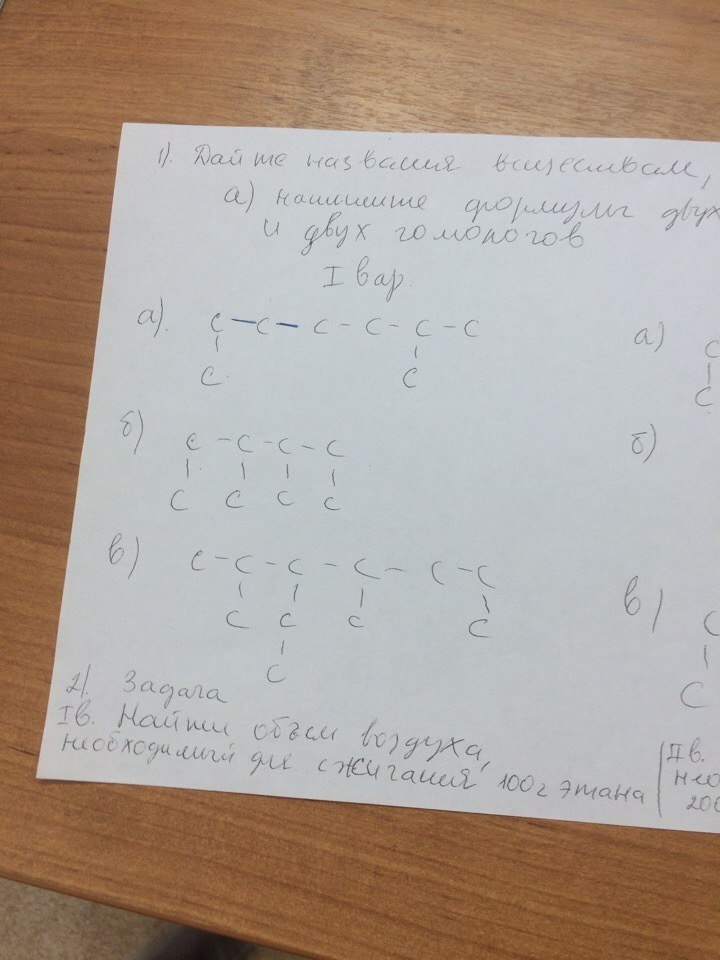 1). Дайте названия веществам,
а) напишите формулы двух
и двух гомологов
I вар.
а). C – C – C – C – C – C
C C
б) C – C – C – C
C C C C
в) C – C – C – C – C – C
C C C C
C
2). Задача
Iв. Найти объем воздуха,
необходимый для сжигания 100г этана
а)
C
C
б)
в)
C
C
IIв.
нео
200